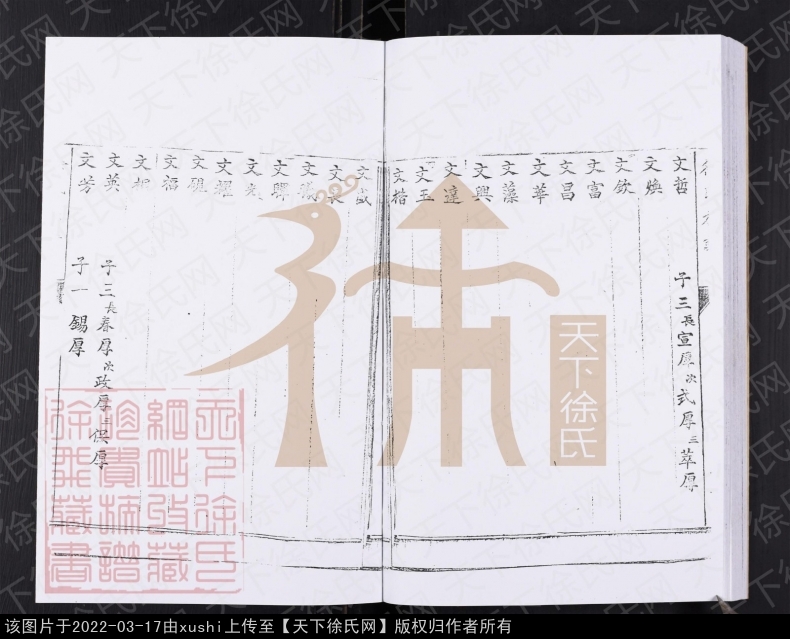 文哲 子三長宣厚次式厚三萃厚
文煥
文欽
文富
文昌
文華
文藻
文興
文達
文玉
文楷
文盛
文長
文
文聯
文
文耀
文
文福
文
文英 子三長春厚次政厚三俁厚
文芳 子一錫厚
天下徐氏
天下徐氏
網站收藏
珍貴族譜
徐平藏書
该图片于2022-03-17由xushi上传至【天下徐氏网】版权归作者所有